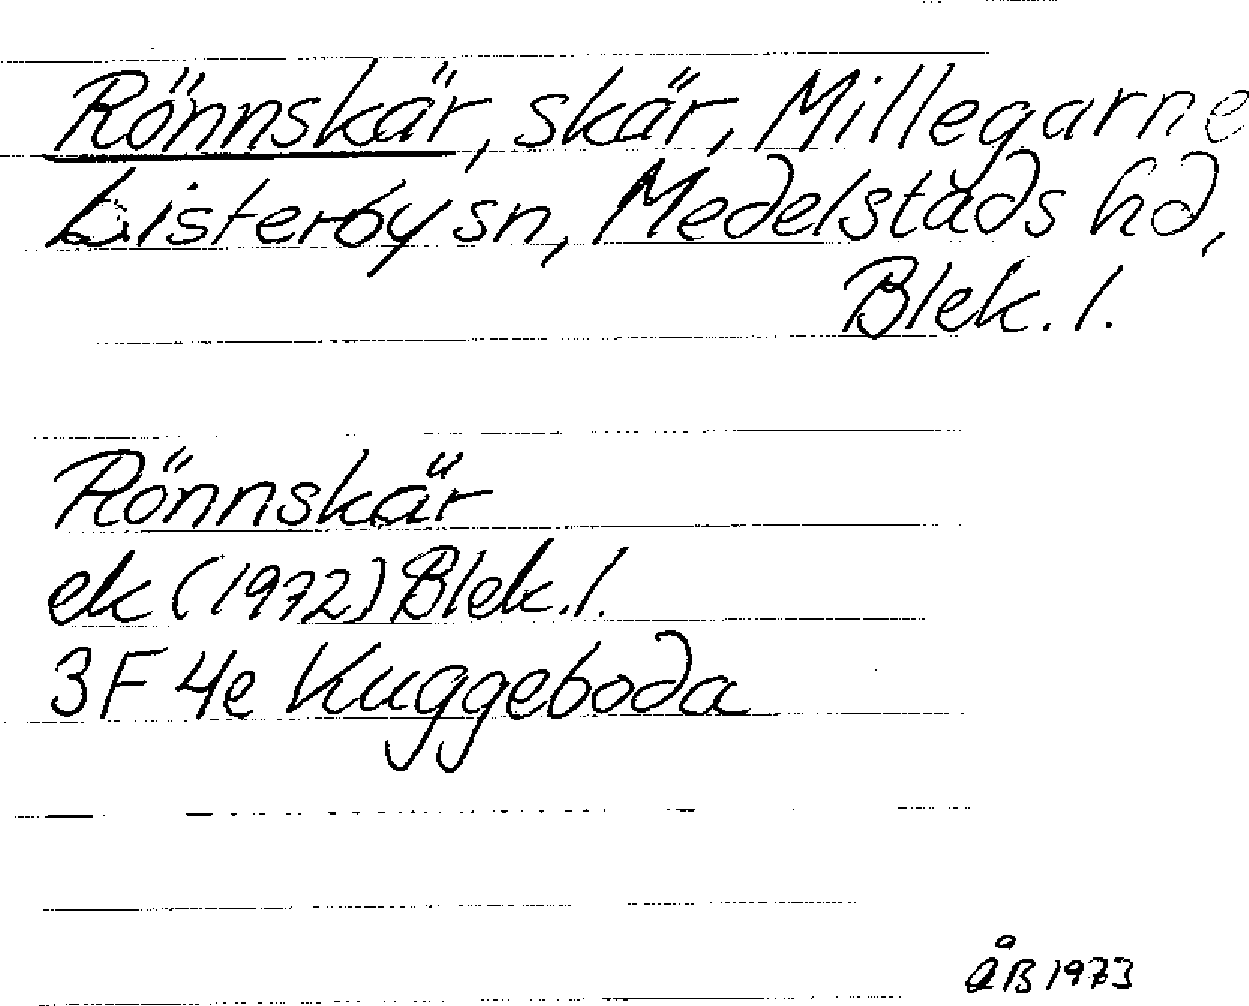 Rönnskär, skär, Millegarne
Listerby sn, Medelstads hd,
Blek. l.
Rönnskär
ek (1972) Blek. l.
3F 4e Kuggeboda
ÅB 1973